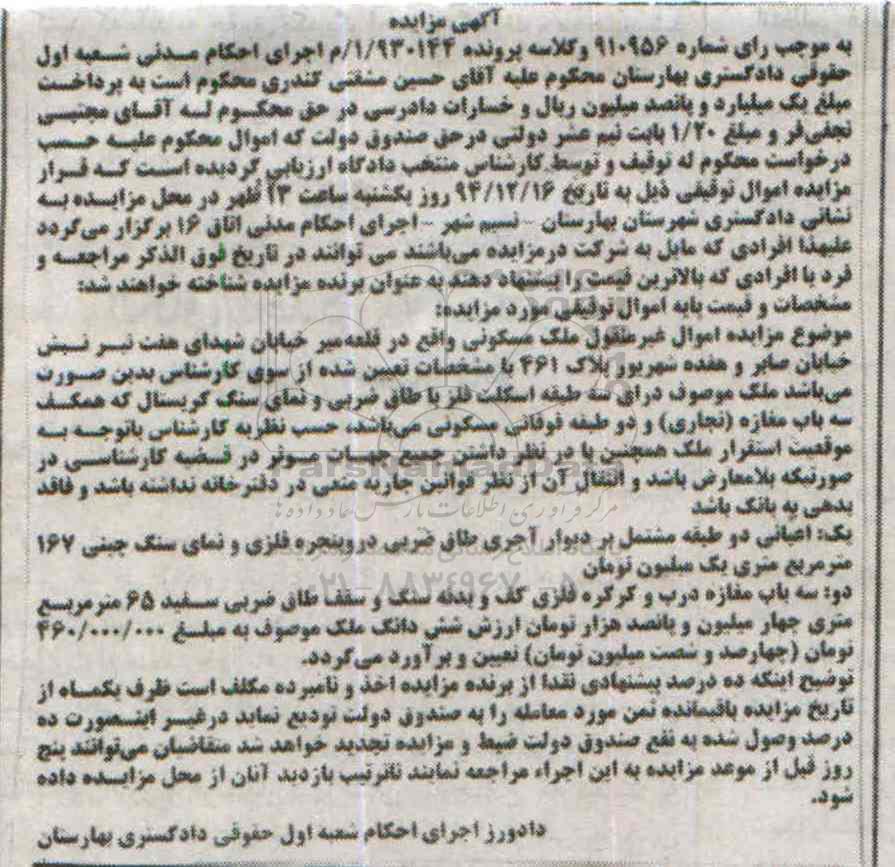 آگهی مزایده
به موجب رای شماره ۹۱۰۹۵۶ وکلاسه پرونده ۹۳۰۱۴۴/۱/م اجرای احکام مدنی شعبه اول
حقوقی دادگستری بهارستان محکوم علیه آقای حسین مشقتی کندری محکوم است به پرداخت
مبلغ یک میلیارد و پانصد میلیون ریال و خسارات دادرسی در حق محکوم له آقای مجتبی
نجفی‌فر و مبلغ ۱/۲۰ بابت نیم عشر دولتی درحق صندوق دولت که اموال محکوم علیه حسب
درخواست محکوم له توقیف و توسط کارشناس منتخب دادگاه ارزیابی گردیده است که قرار
مزایده اموال توقیفی ذیل به تاریخ ۹۴/۱۲/۱۶ روز یکشنبه ساعت ۱۳ ظهر در محل مزایده به
نشانی دادگستری شهرستان بهارستان – نسیم شهر – اجرای احکام مدنی اتاق ۱۶ برگزار می‌گردد
علیهذا افرادی که مایل به شرکت درمزایده می‌باشند می توانند در تاریخ فوق الذکر مراجعه و
فرد یا افرادی که بالاترین قیمت را پیشنهاد دهند به عنوان برنده مزایده شناخته خواهند شد:
مشخصات و قیمت پایه اموال توقیفی مورد مزایده:
موضوع مزایده اموال غیرمنقول ملک مسکونی واقع در قلعه‌میر خیابان شهدای هفت تیر نبش
خیابان صابر و هفده شهریور پلاک ۴۶۱ با مشخصات تعیین شده از سوی کارشناس بدین صورت
می‌باشد ملک موصوف درای سه طبقه اسکلت فلز با طاق ضربی و نمای سنگ کریستال که همکف
سه باب مغازه (تجاری) و دو طبقه فوقانی مسکونی می‌باشد، حسب نظریه کارشناس باتوجه به
موقعیت استقرار ملک همچنین با در نظر داشتن جمیع جهات موثر در قضیه کارشناسی در
صورتیکه بلامعارض باشد و انتقال آن از نظر قوانین جاریه منعی در دفترخانه نداشته باشد و فاقد
بدهی به بانک باشد
یک: اعیانی دو طبقه مشتمل بر دیوار آجری طاق ضربی دروپنجره فلزی و نمای سنگ چینی ۱۶۷
مترمربع متری یک میلیون تومان
دو: سه باب مغازه درب و کرکره فلزی کف و بدنه سنگ و سقف طاق ضربی سفید ۶۵ مترمربع
متری چهار میلیون و پانصد هزار تومان ارزش شش دانگ ملک موصوف به مبلغ ۴۶۰/۰۰۰/۰۰۰
تومان (چهارصد و شصت میلیون تومان) تعیین و برآورد می‌گردد.
توضیح اینکه ده درصد پیشنهادی نقدا از برنده مزایده اخذ و نامبرده مکلف است ظرف یکماه از
تاریخ مزایده باقیمانده ثمن مورد معامله را به صندوق دولت تودیع نماید درغیر اینصورت ده
درصد وصول شده به نفع صندوق دولت ضبط و مزایده تجدید خواهد شد متقاضیان می‌توانند پنج
روز قبل از موعد مزایده به این اجراء مراجعه نمایند تاترتیب بازدید آنان از محل مزایده داده
شود.
دادورز اجرای احکام شعبه اول حقوقی دادگستری بهارستان